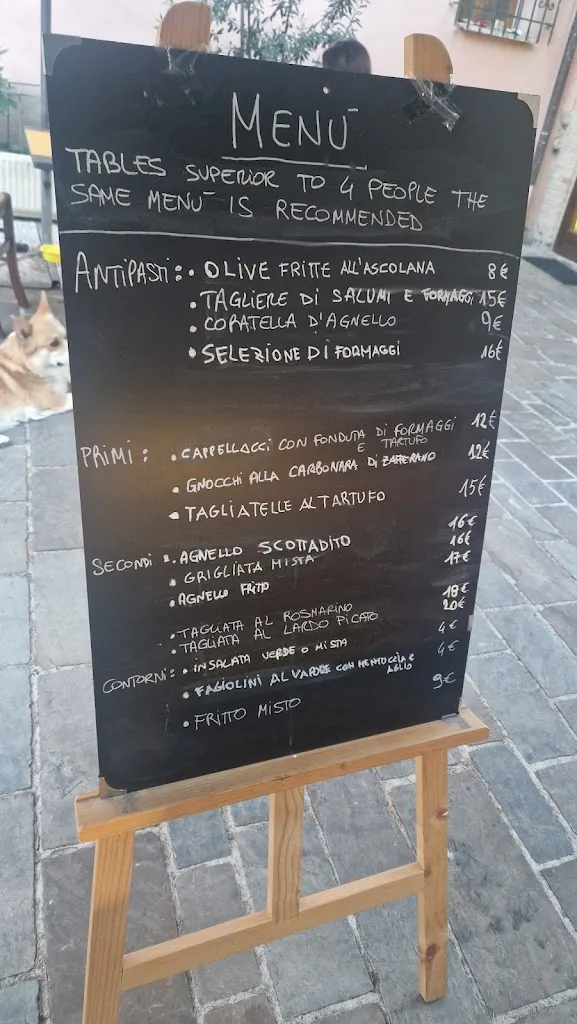 MENÙ
TABLES SUPERIOR TO 4 PEOPLE THE
SAME MENÙ IS RECOMMENDED
ANTIPASTI: • OLIVE FRITTE ALL'ASCOLANA 8€
• TAGLIERE DI SALUMI E FORMAGGI 15€
• CORATELLA D'AGNELLO 9€
• SELEZIONE DI FORMAGGI 16€
PRIMI: • CAPPELLACCI CON FONDUTA DI FORMAGGI 12€
E TARTUFO
• GNOCCHI ALLA CARBONARA DI ZAFFERANO 12€
• TAGLIATELLE AL TARTUFO 15€
SECONDI: • AGNELLO SCOTTADITO 16€
• GRIGLIATA MISTA 16€
• AGNELLO FRITTO 17€
• TAGLIATA AL ROSMARINO 18€
• TAGLIATA AL LARDO PICATO 20€
CONTORNI: • INSALATA VERDE O MISTA 4€
• FAGIOLINI AL VAPORE CON MENTUCCIA E 4€
AGLIO
• FRITTO MISTO 9€